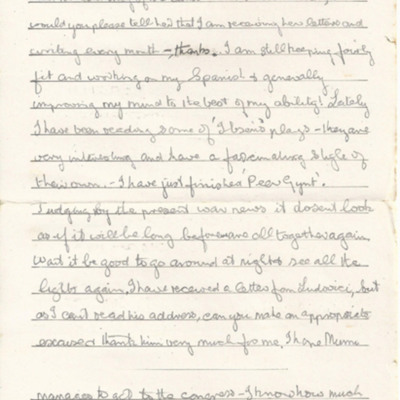 would you please tell her that I am receiving her letters and
writing every month – thanks. I am still keeping fairly
fit and working on my Spanish & generally
improving my mind to the best of my ability! Lately
I have been reading some of 'Ibsen's plays – they are
very interesting and have a fascinating style of
their own. – I have just finished 'Peer Gynt'.
Judging by the present war news it doesent look
as if it will be long before we are all together again.
Wont it be good to go around at night & see all the
lights again. I have received a letter from Ludovici, but
as I cant read his address, can you make an appropriate
excuse & thank him very much for me, I hope Mum
manages to get to the congress – I know how much